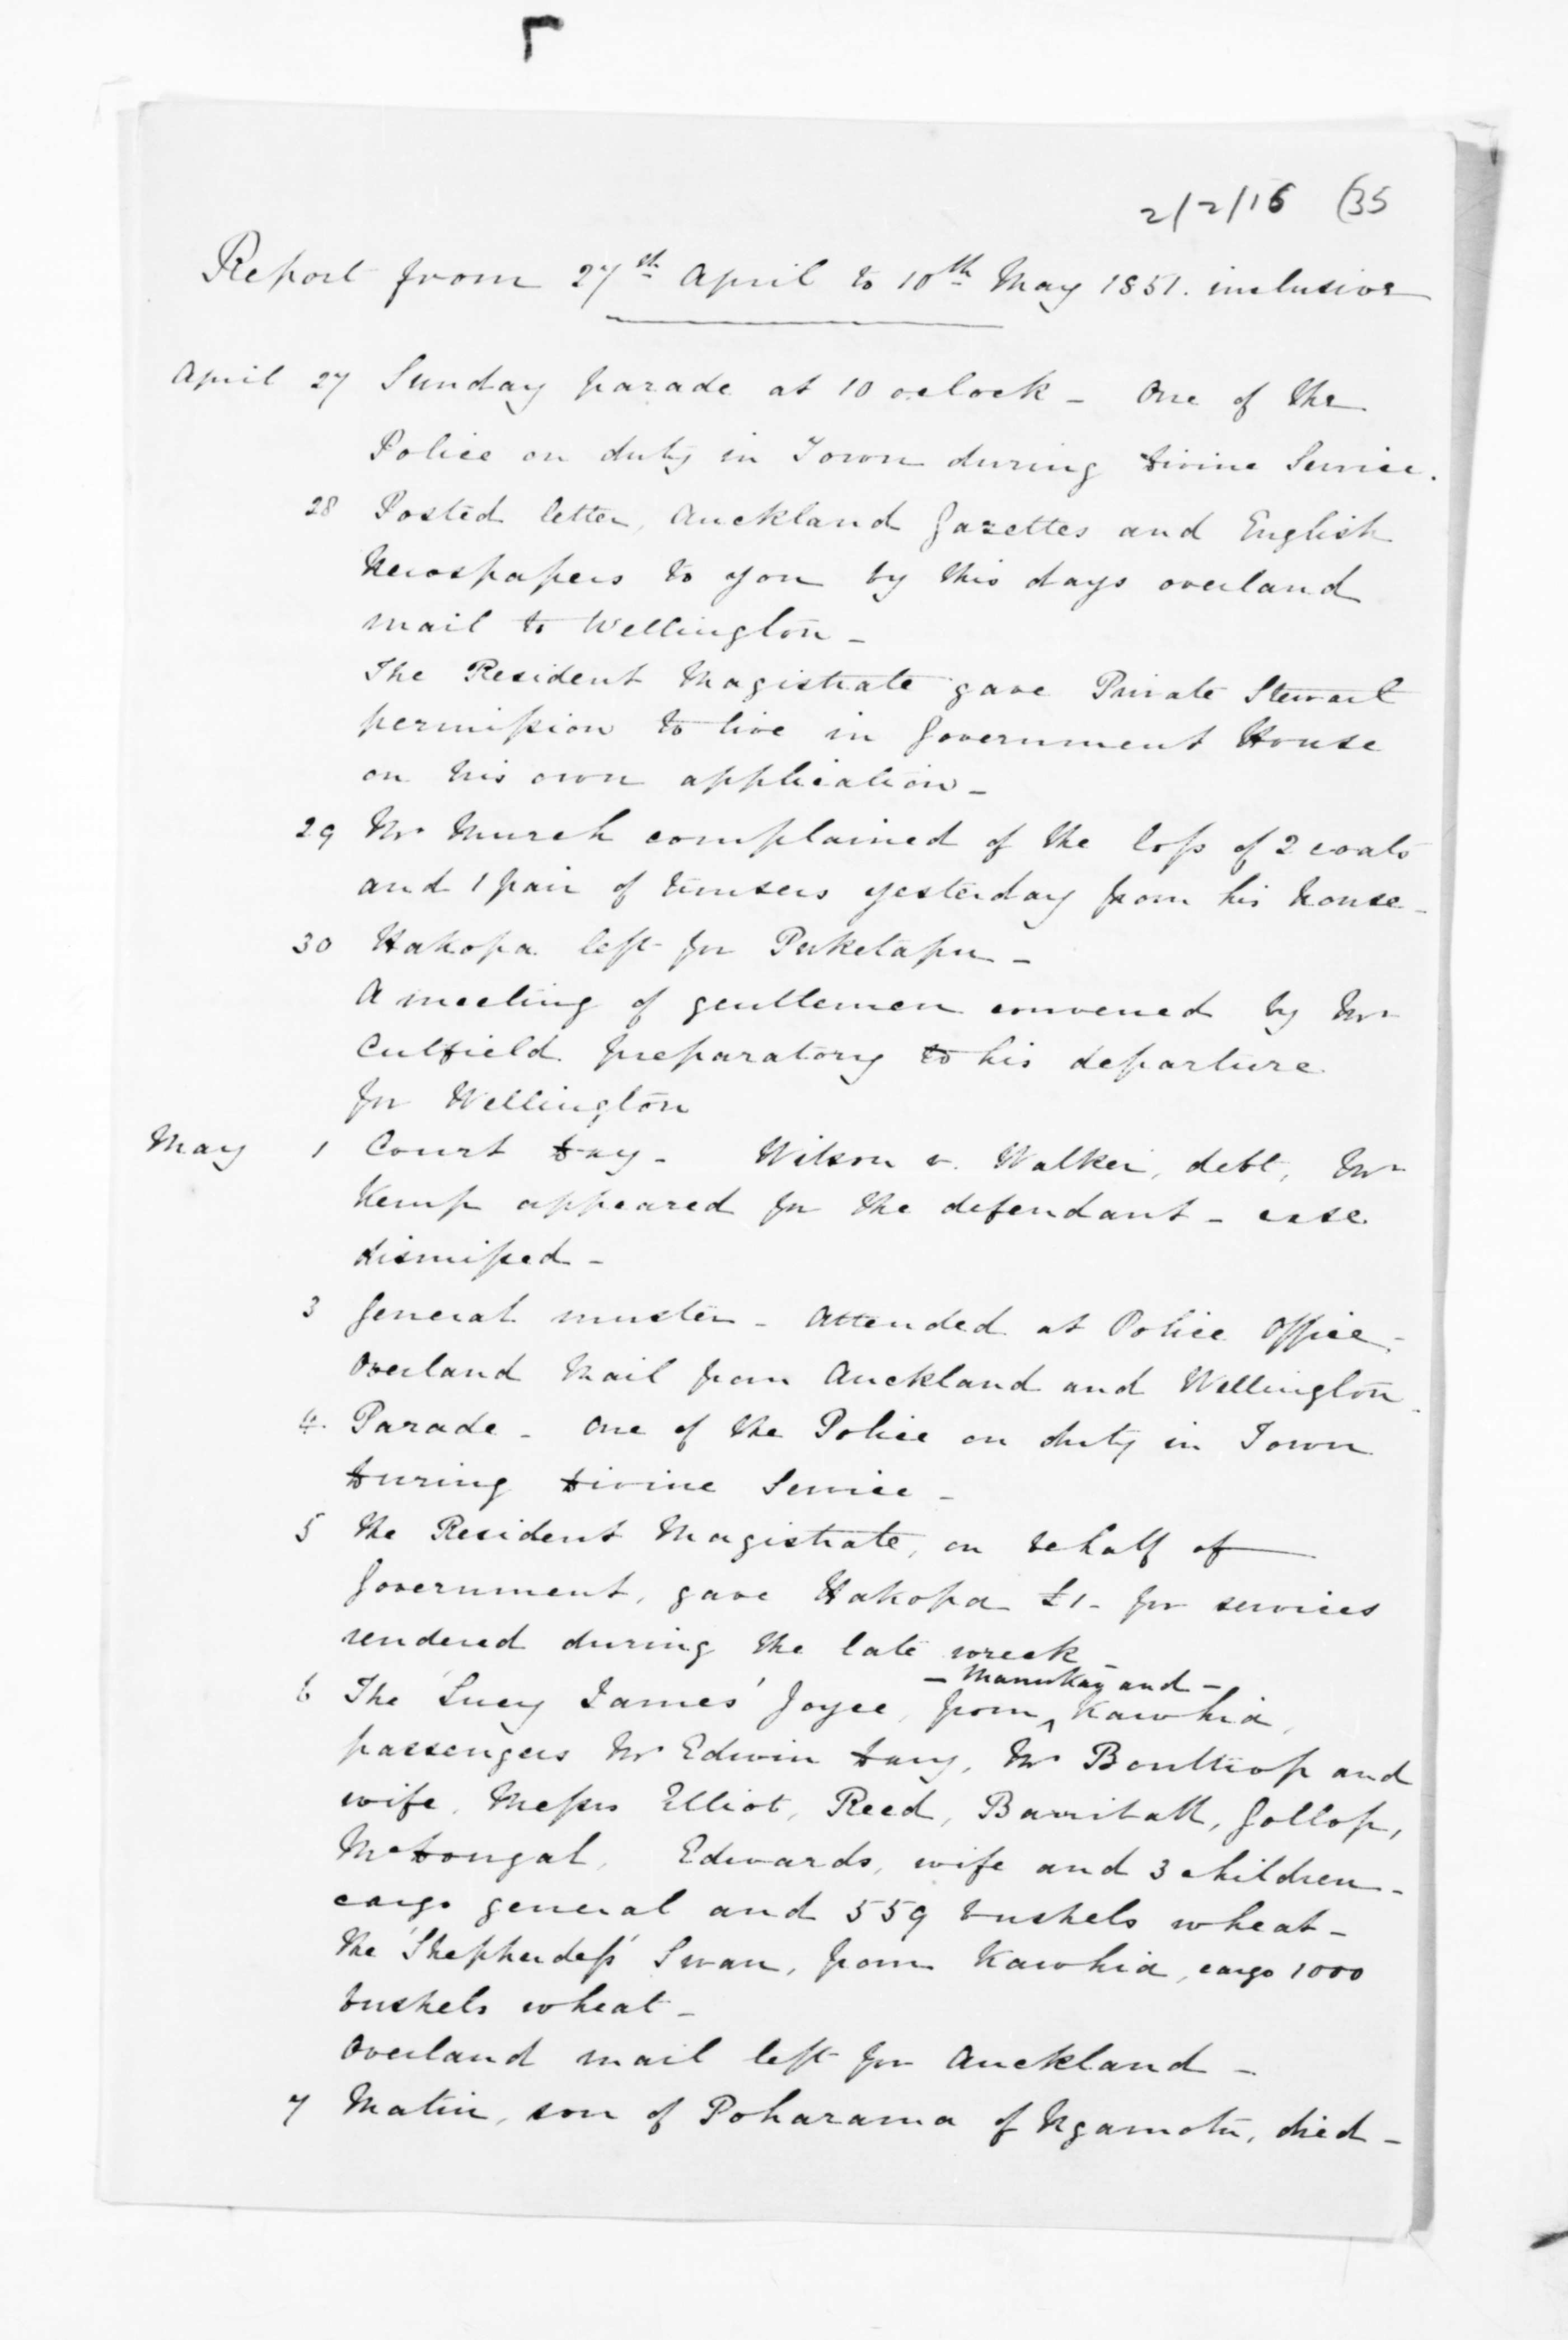 2/2/16 (35
Report from 27th April to 10th May 1851. inclusive
April 27 Sunday parade at 10 oclock - One of the
Police on duty in Town during Divine Service.
28 Posted letter, Auckland Gazettes and English
Newspapers to you by this days overland
mail to Wellington -
The Resident Magistrate gave Private Stewart
permission to live in Government House
on his own application -
29 Mr Murch complained of the loss of 2 coats
and 1 pair of trousers yesterday from his house -
30 Hakopa left for Puketapu -
A meeting of gentlemen convened by Mr
Cutfield preparatory to his departure
for Wellington
May 1 Court Day - Wilson v. Walker, debt, Mr
Kemp appeared for the defendant - case
dismissed -
3 General muster - Attended at Police Office -
Overland Mail from Auckland and Wellington -
4. Parade - One of the Police on duty in Town
During Divine Service -
5 The Resident Magistrate, on behalf of
Government, gave Hakopa £1 - for services
rendered during the late wreck -
- Manukau and -
6 The 'Lucy James' Joyce, from ^ Kawhia,
passengers Mr Edwin Davy, Mr and
wife, Messrs Elliot, Reed, Gollop,
McDougal, Edwards, wife and 3 children -
cargo general and 559 bushels wheat -
The 'Shepherdess' Swan, from Kawhia, cargo 1000
bushels wheat -
Overland mail left for Auckland -
7 Matiu, son of Poharama of Ngamotu, died -